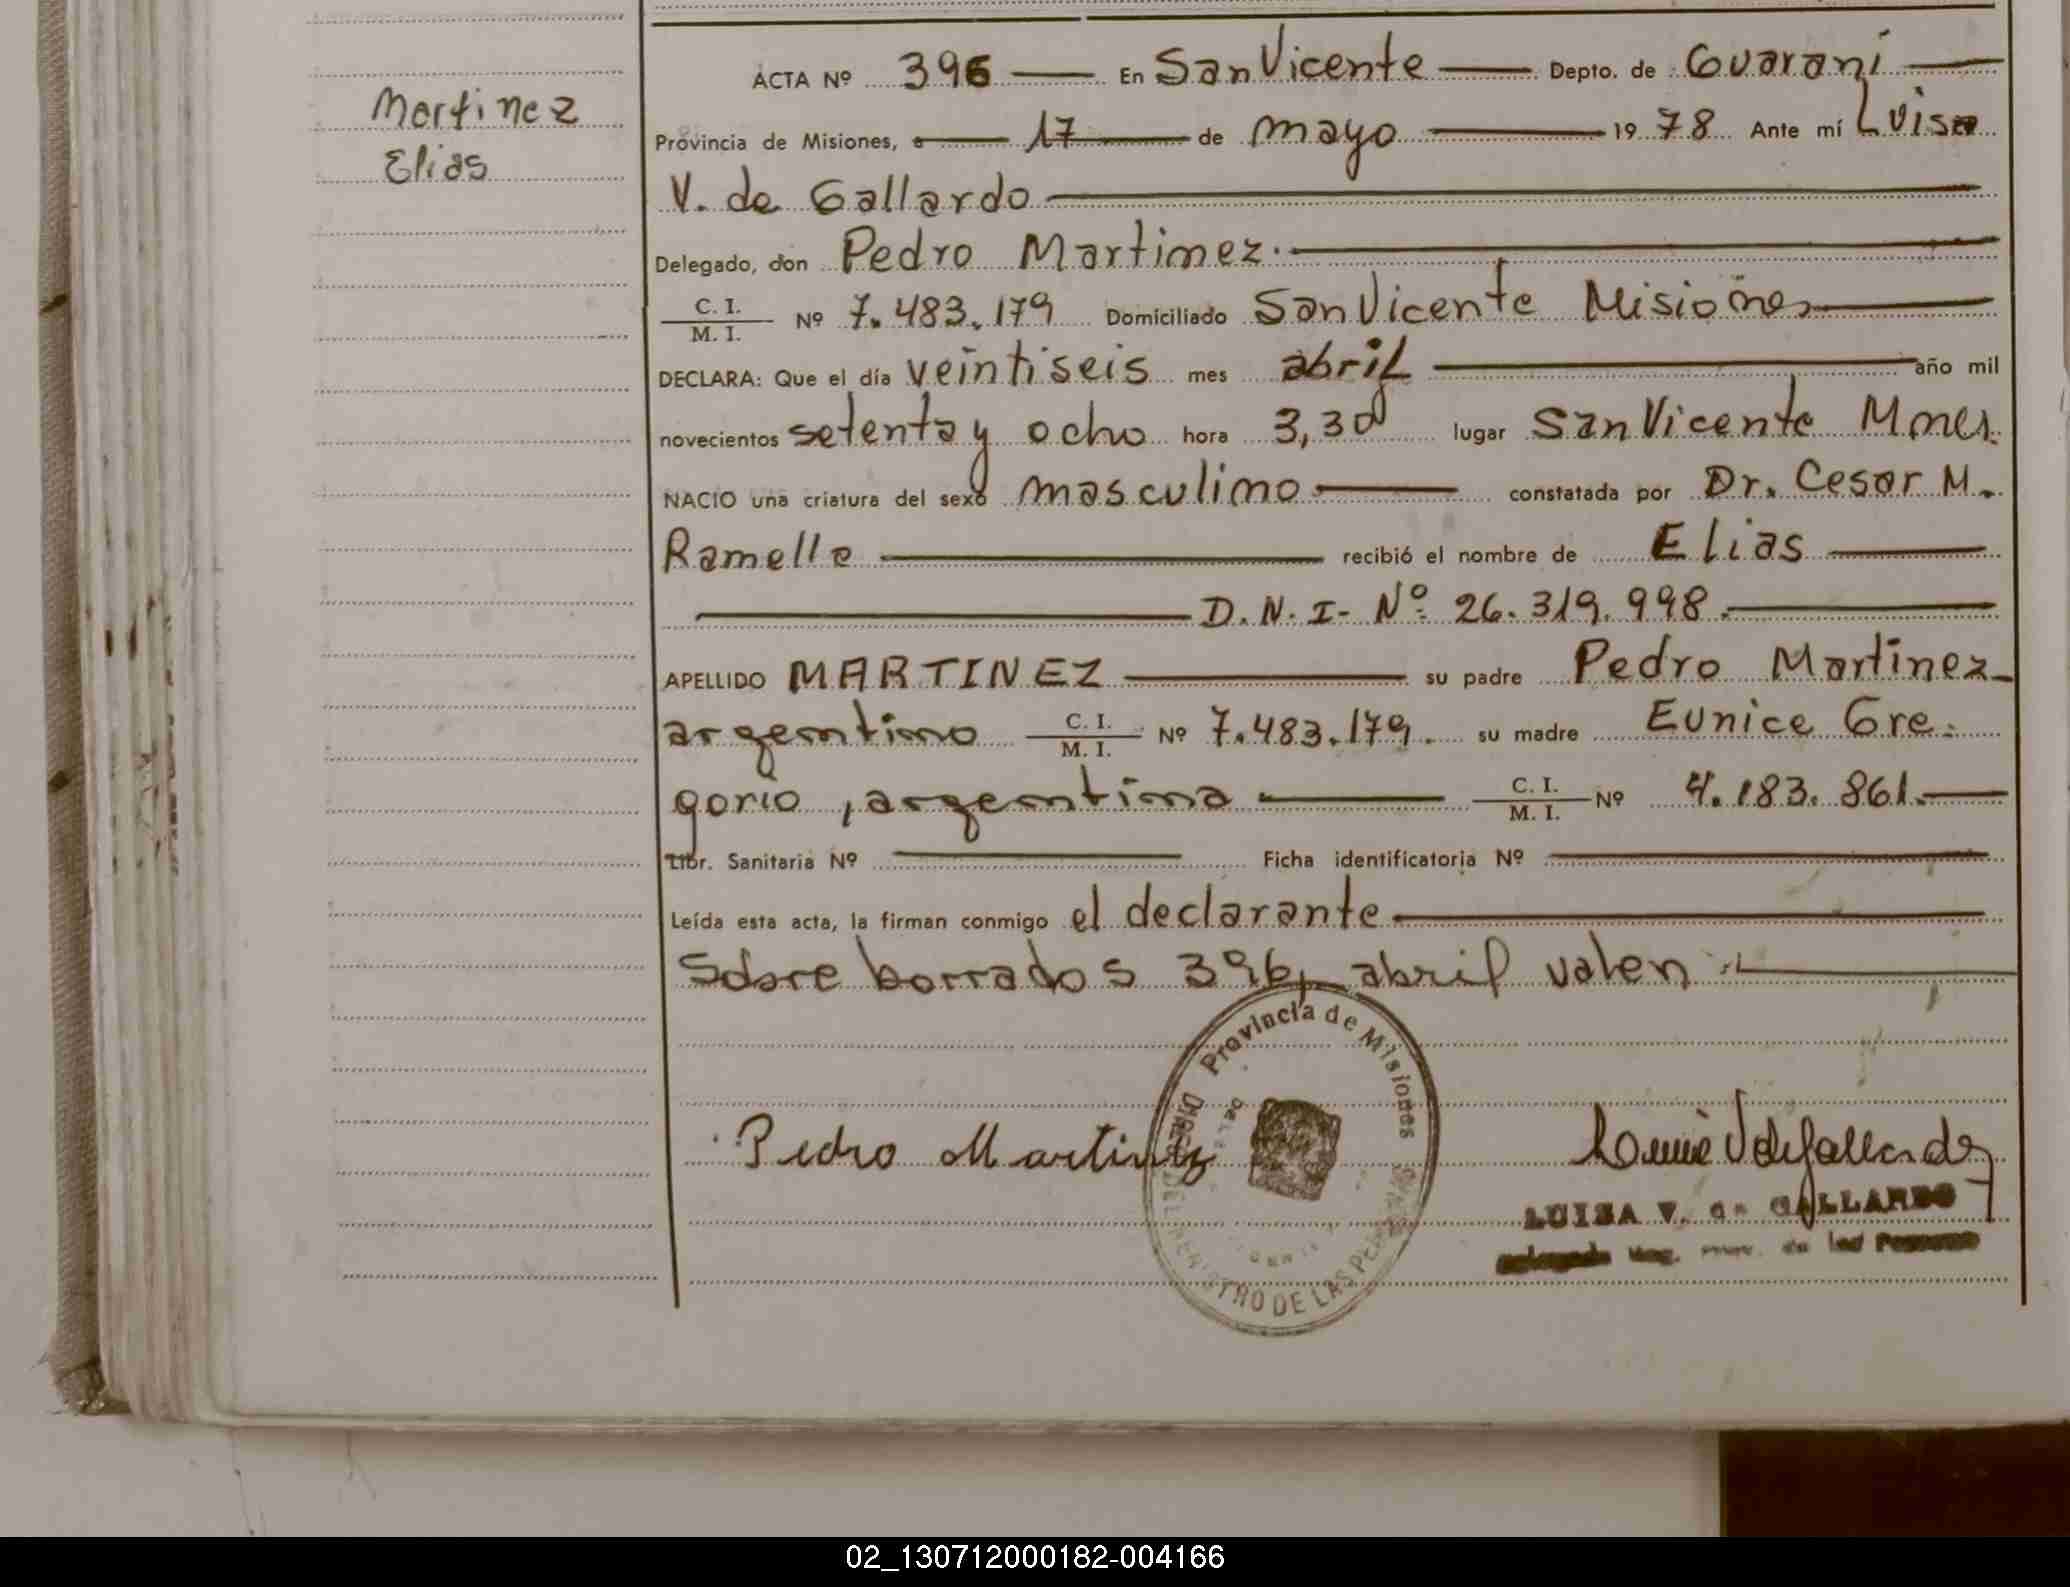 Martinez
Elias
ACTA Nº 396 En San Vicente Depto. de Guaraní
Provincia de Misiones, a 17 de mayo 1978 Ante mí Luisa
V. de Gallardo
Delegado, don Pedro Martinez.
C. I. / M. I. Nº 7.483.179 Domiciliado San Vicente Misiones
DECLARA: Que el día veintiseis mes abril año mil
novecientos setenta y ocho hora 3,30 lugar San Vicente Mnes.
NACIO una criatura del sexo masculino constatada por Dr. Cesar M.
Ramella recibió el nombre de Elias
D.N.I- Nº 26.319.998.
APELLIDO MARTINEZ su padre Pedro Martinez
argentino C. I. / M. I. Nº 7.483.179. su madre Eunice Gre-
gorio, argentina C. I. / M. I. Nº 4.183.861.
Libr. Sanitaria Nº Ficha identificatoria Nº
Leída esta acta, la firman conmigo el declarante
Sobre borrados 396, abril valen
Provincia de Misiones
DEL REGISTRO DE LAS PERSONAS
Pedro Martinez
LUISA V. de GALLARDO
02_130712000182-004166